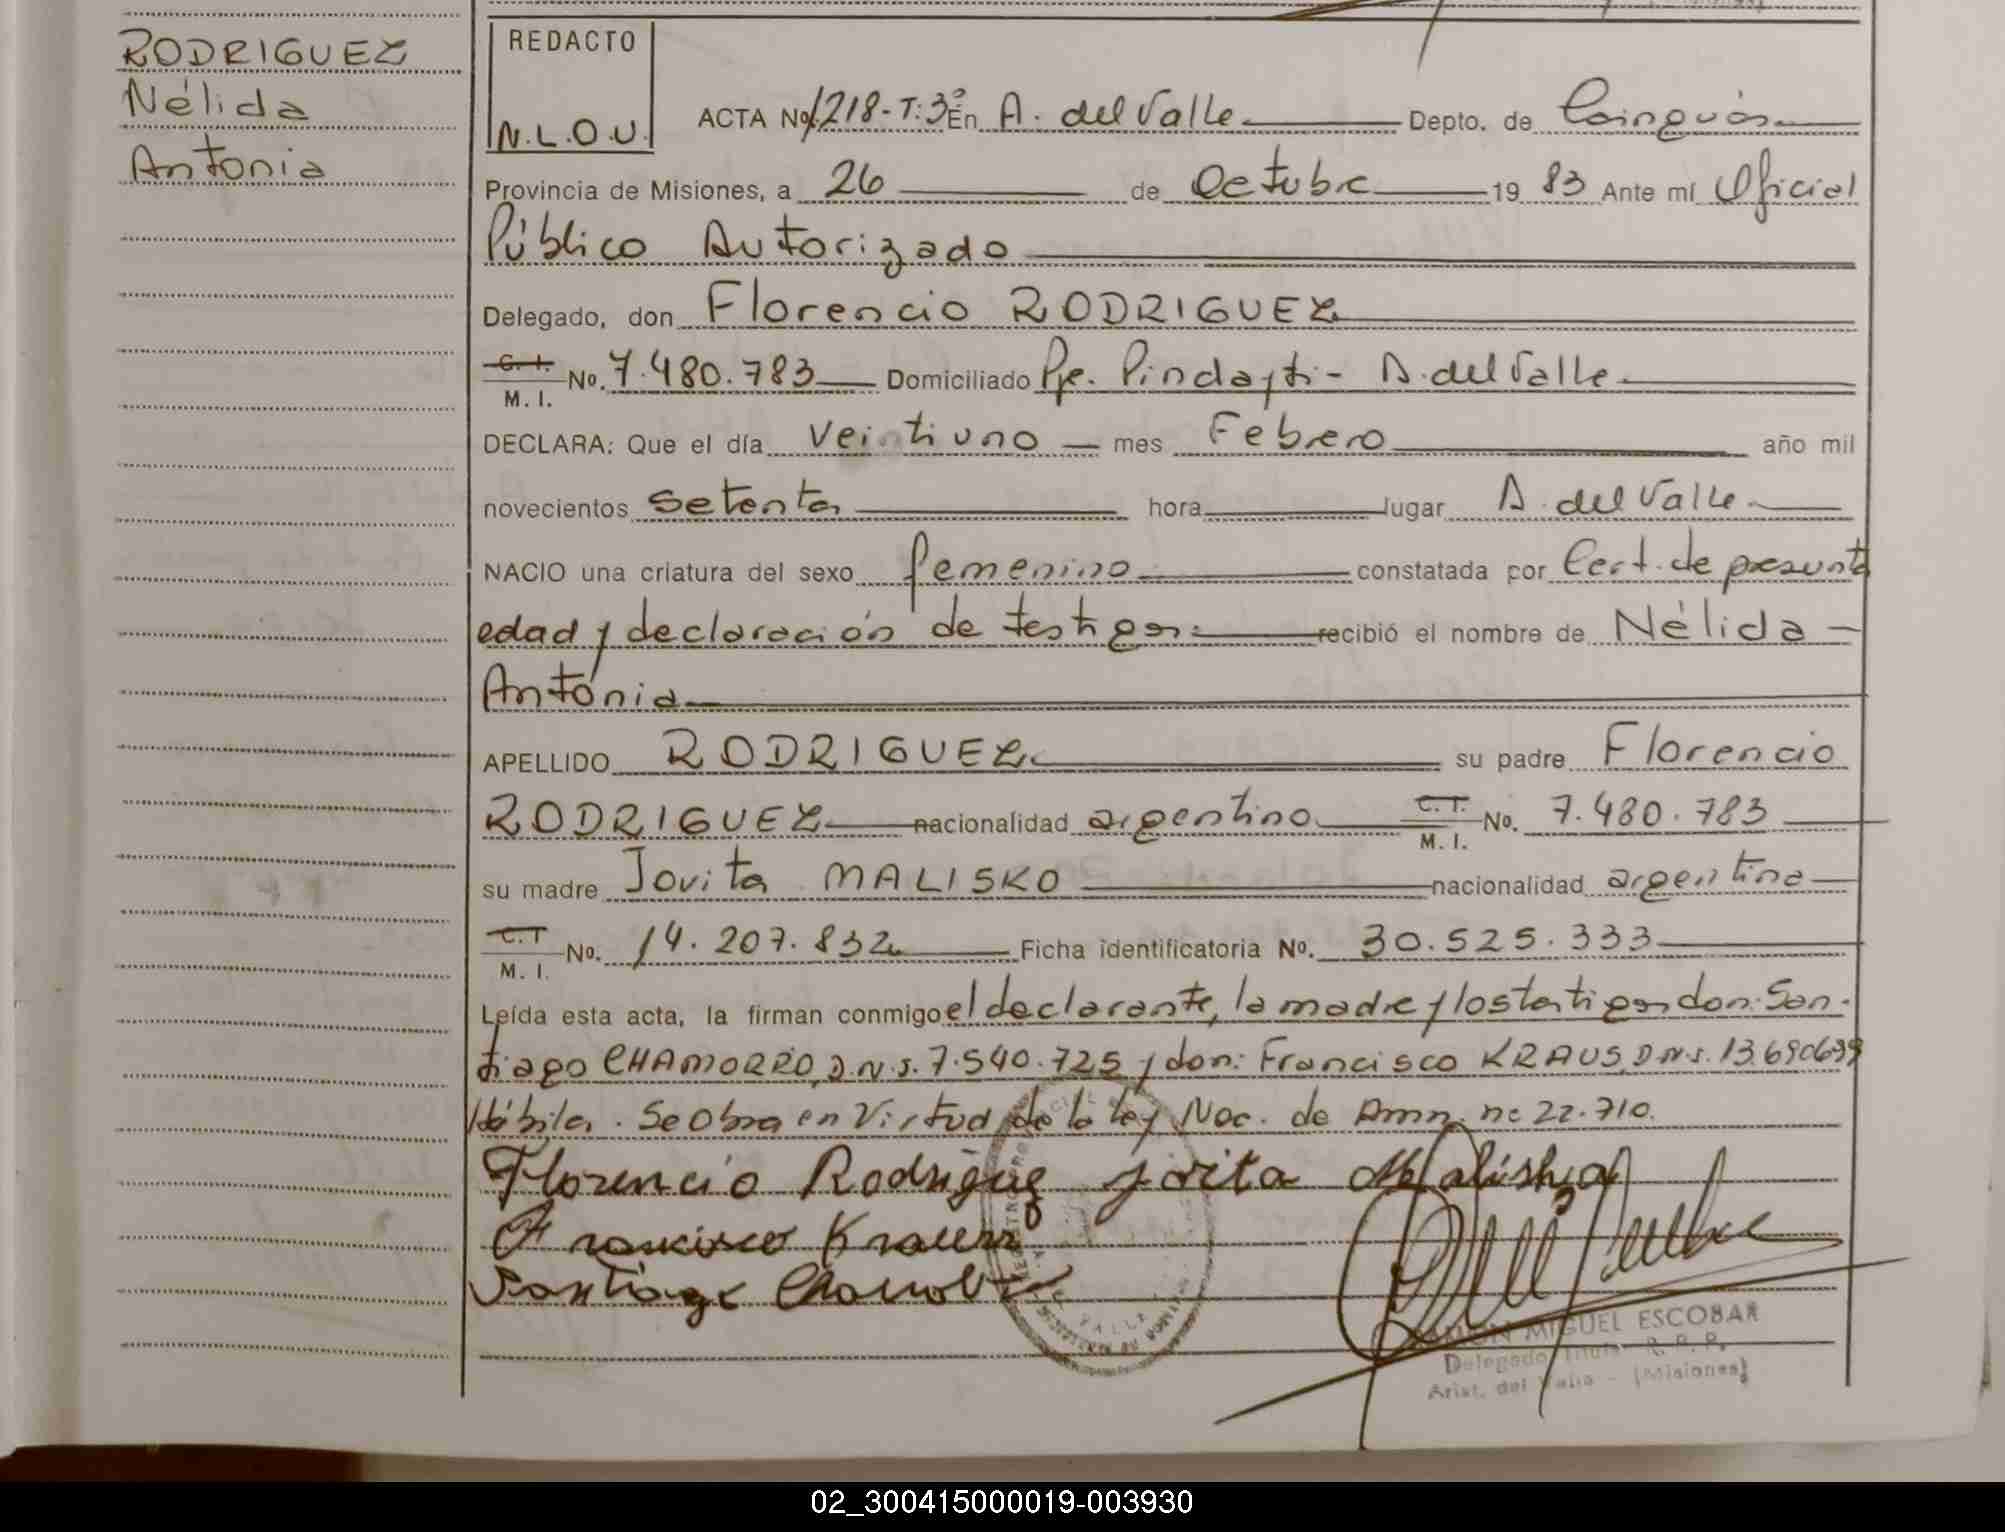 RODRIGUEZ
Nélida
Antonia
REDACTO
N.L.O.U.
ACTA No. 1218-T:3º En A. del Valle Depto. de Cainguás
Provincia de Misiones, a 26 de Octubre 19 83 Ante mí Oficial
Público Autorizado
Delegado, don Florencio RODRIGUEZ
C. I. M. I. No. 7.480.783 Domiciliado Pje. Pindayti - A. del Valle
DECLARA: Que el día veintiuno mes Febrero año mil
novecientos setenta hora lugar A. del Valle
NACIO una criatura del sexo femenino constatada por Cert. de presunta
edad y declaración de testigos. recibió el nombre de Nélida
Antonia
APELLIDO RODRIGUEZ su padre Florencio
RODRIGUEZ nacionalidad argentino C. I. M. I. No. 7.480.783
su madre Jovita MALISKO nacionalidad argentina
C. I. M. I. No. 14.207.832 Ficha identificatoria No. 30.525.333
Leída esta acta, la firman conmigo el declarante, la madre y los testigos don: San-
tiago CHAMORRO, D.N.I. 7.540.725 y don: Francisco KRAUS, D.N.I. 13.690.639
Hábiles. Se Obra en Virtud de la ley Nac. de Amn. nº 22.710.
Florencio Rodriguez Jovita Malisko
Francisco Kraus
Santiago
MIGUEL ESCOBAR
Delegado Titular R. P. P.
Arist. del Valle - (Misiones)
02_300415000019-003930